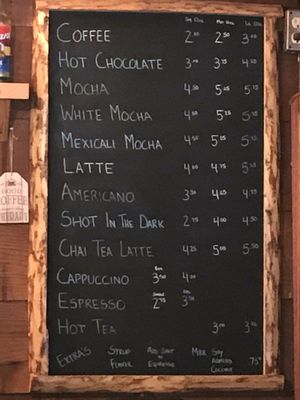 COFFEE 2.00 2.50 3.00
HOT CHOCOLATE 3.00 3.75 4.25
MOCHA 4.50 5.25 5.75
WHITE MOCHA 4.50 5.25 5.75
MEXICALI MOCHA 4.50 5.25 5.75
LATTE 4.00 4.75 5.50
AMERICANO 3.50 4.25 4.75
SHOT IN THE DARK 2.75 4.00 4.50
CHAI TEA LATTE 4.25 5.00 5.50
CAPPUCCINO 3.50 4.00
ESPRESSO 2.75 3.50
HOT TEA 3.00
EXTRA'S SYRUP ADD SHOT MILK SOY
FLAVOR ESPRESSO ALMOND .75
COCONUT
GOOD
COFFEE